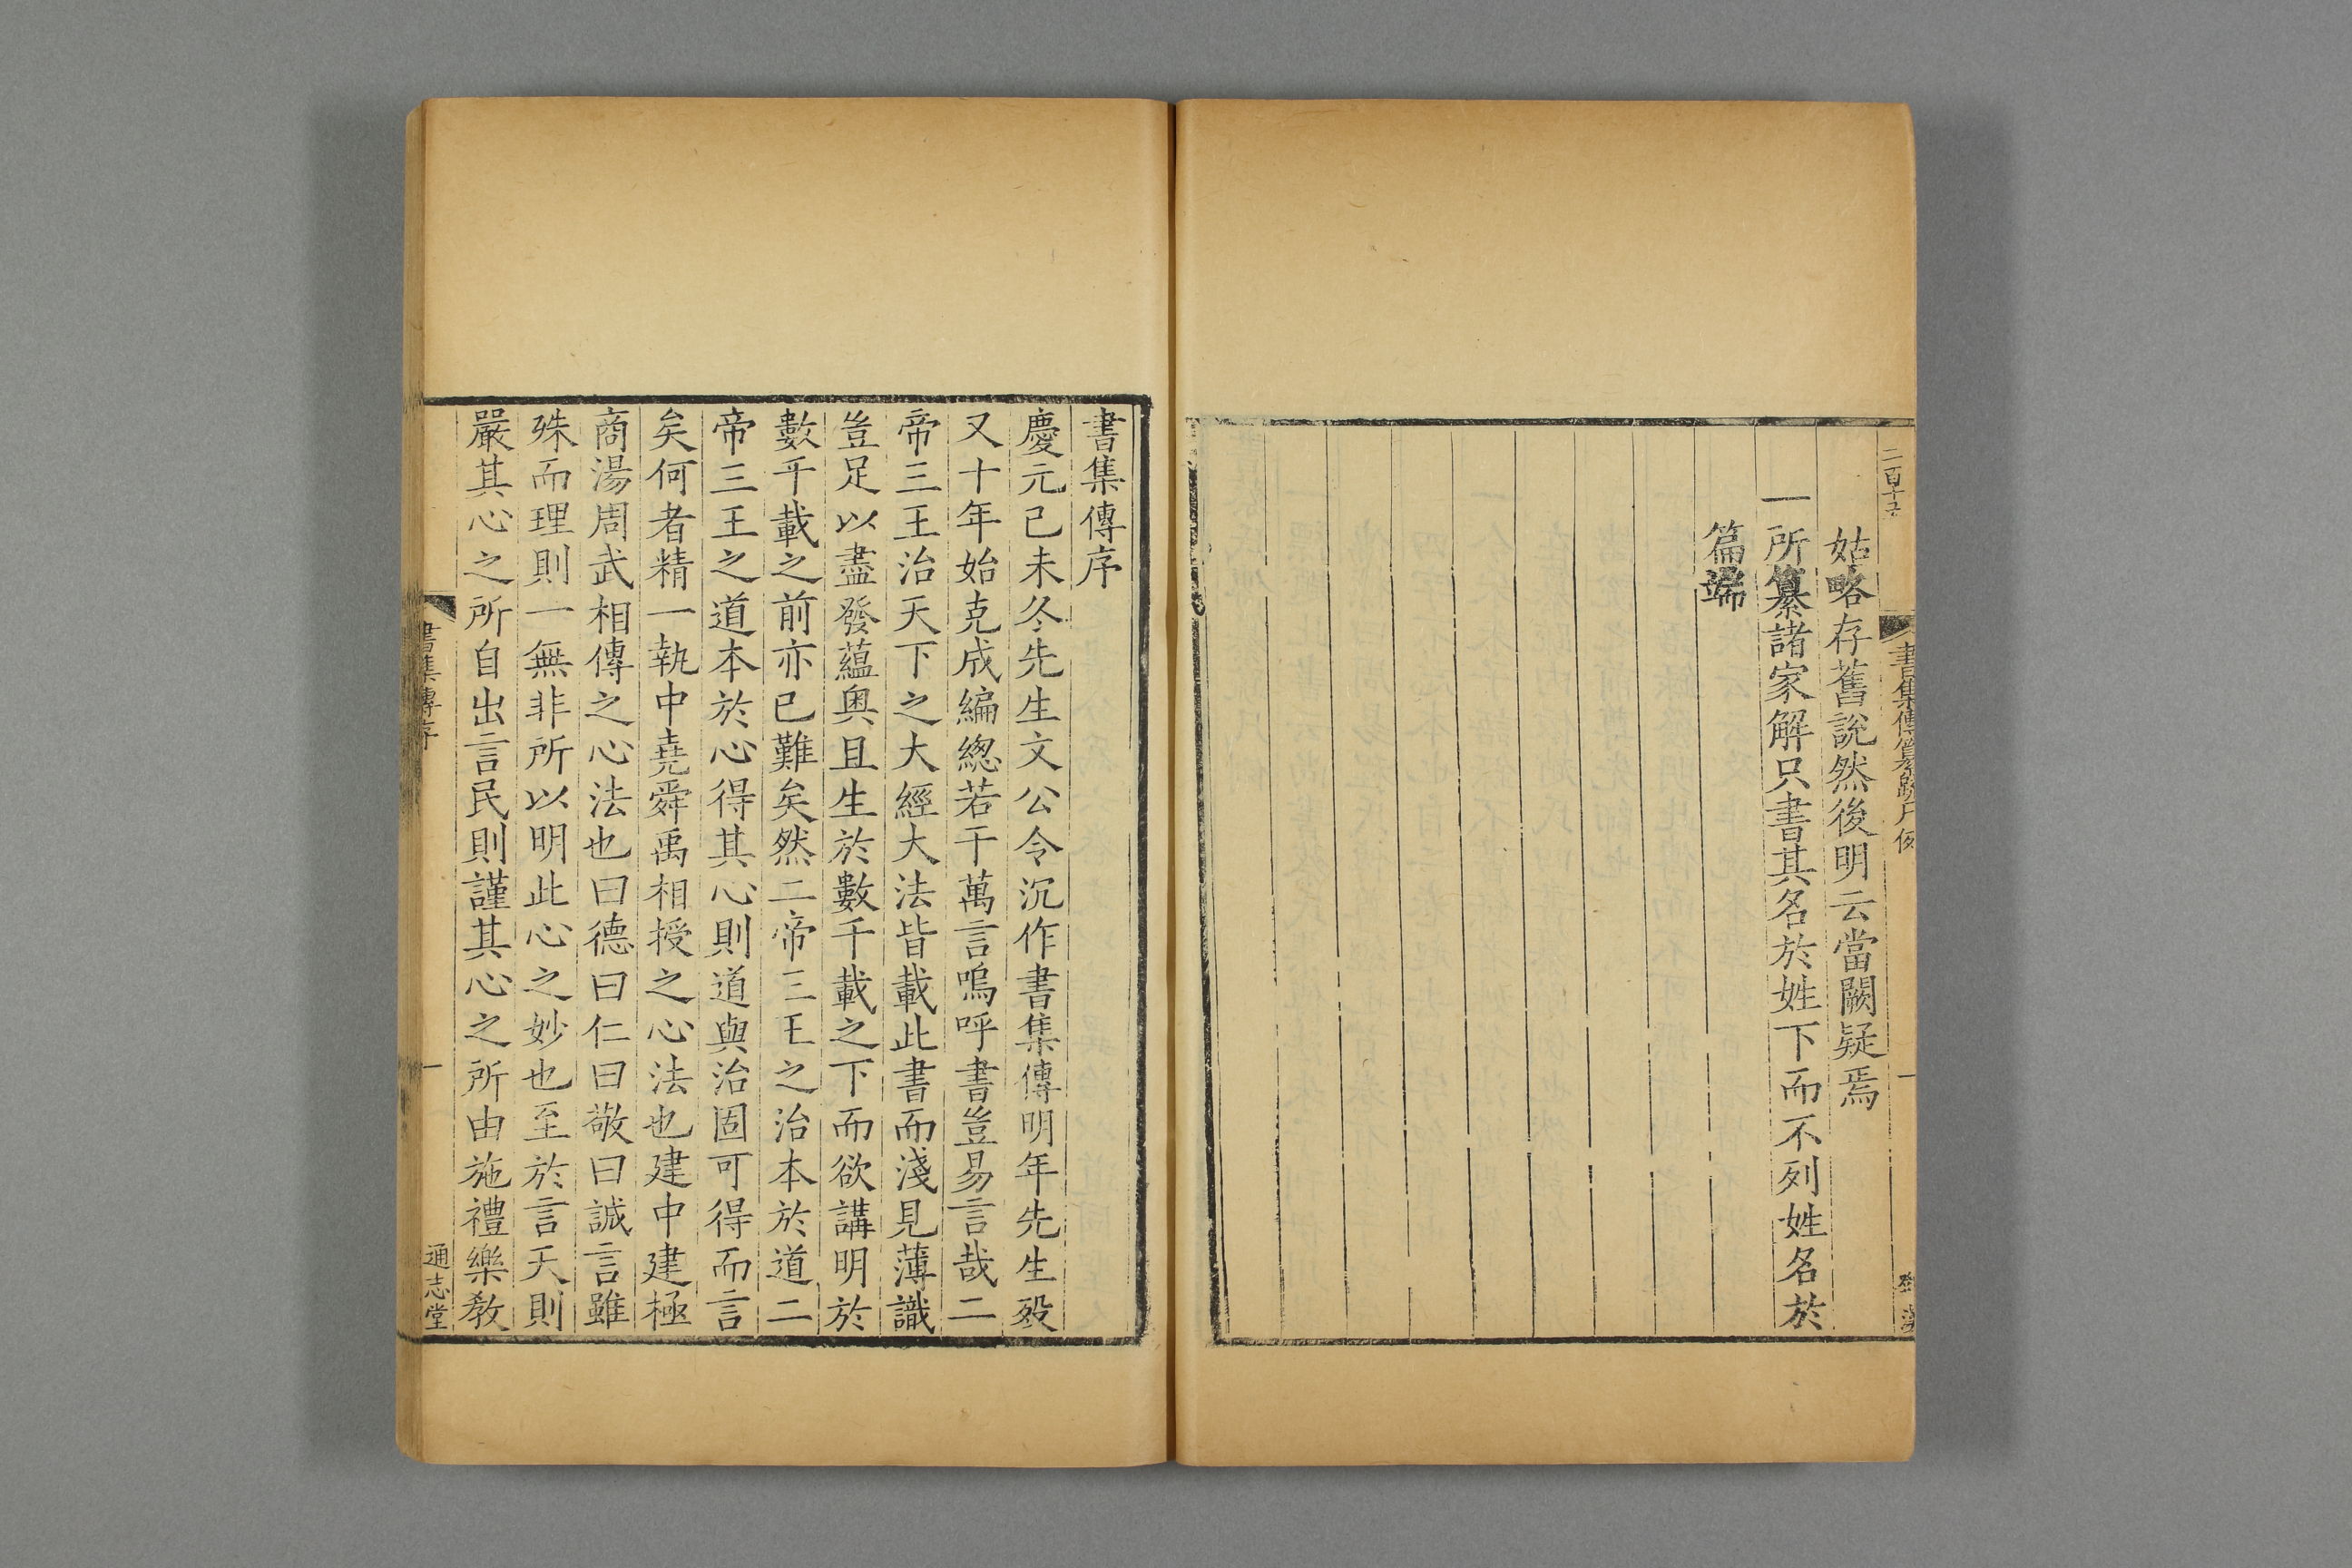 二百十六
書集傳纂疏凡例
一
姑略存舊說然後明云當闕疑焉
一所纂諸家解只書其名於姓下而不列姓名於
篇端
書集傳序
慶元己未冬先生文公令沉作書集傳明年先生歿
又十年始克成編緫若干萬言嗚呼書豈易言哉二
帝三王治天下之大經大法皆載此書而淺見薄識
豈足以盡發蘊奧且生於數千載之下而欲講明於
數千載之前亦已難矣然二帝三王之治本於道二
帝三王之道本於心得其心則道與治固可得而言
矣何者精一執中堯舜禹相授之心法也建中建極
商湯周武相傳之心法也曰德曰仁曰敬曰誠言雖
殊而理則一無非所以明此心之妙也至於言天則
嚴其心之所自出言民則謹其心之所由施禮樂教
書集傳序
一
通志堂